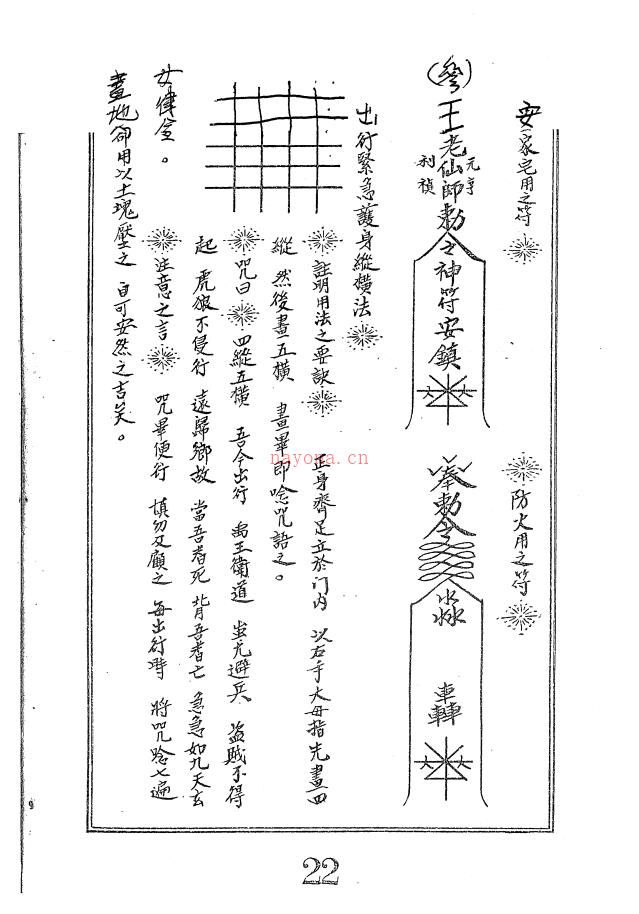 安家宅用之符
防火用之符
王老仙師勅之神符安鎮
元亨
利禎
奉勅令
淼
轟
出行緊急護身縱橫法
註明用法之要訣 正身齊足立於门内 以右手大母指先畫四
縱 然後畫五橫 畫畢即唸咒語之。
咒曰 四縱五橫 吾今出行 禹王衛道 蚩尤避兵 盜賊不得
起 虎狼不侵行 遠歸鄉故 當吾者死 背吾者亡 急急如九天玄
女律令。
注意之言 咒畢便行 慎勿反顧之 每出行時 將咒唸七遍
畫地卻用以土塊壓之 自可安然之吉矣。
nayona.cn
22